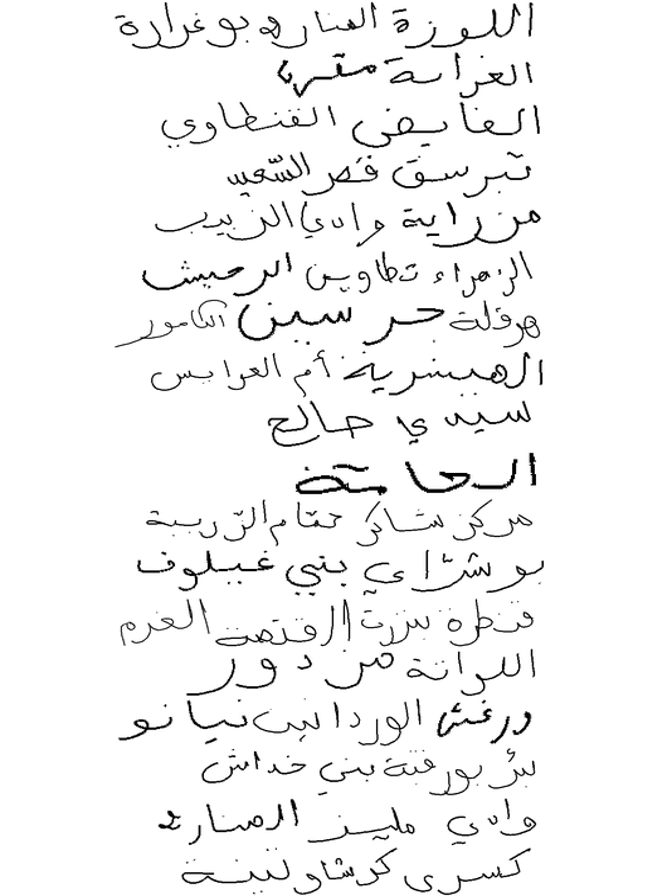 اللوزة المنارة بوغرارة
الغرابة
الفايضي القنطاوي
تبرسق قصر السعيد
مزراية وادي الزيدب
الزهراء تطاوين الرحيش
هرقلة جرسين الكامور
الهيشرية أم العرايس
سيدي صالح
الحامة
مركز شاكر حمام الزريبة
بوشراي بني غيلوف
قنطرة بنزرت القصة الغرم
اللواتة مزدور
درغش الوردانين نيانو
بئر بورقبة بني خداش
وادي مليز المنارة
كسرى كرشاو تينة